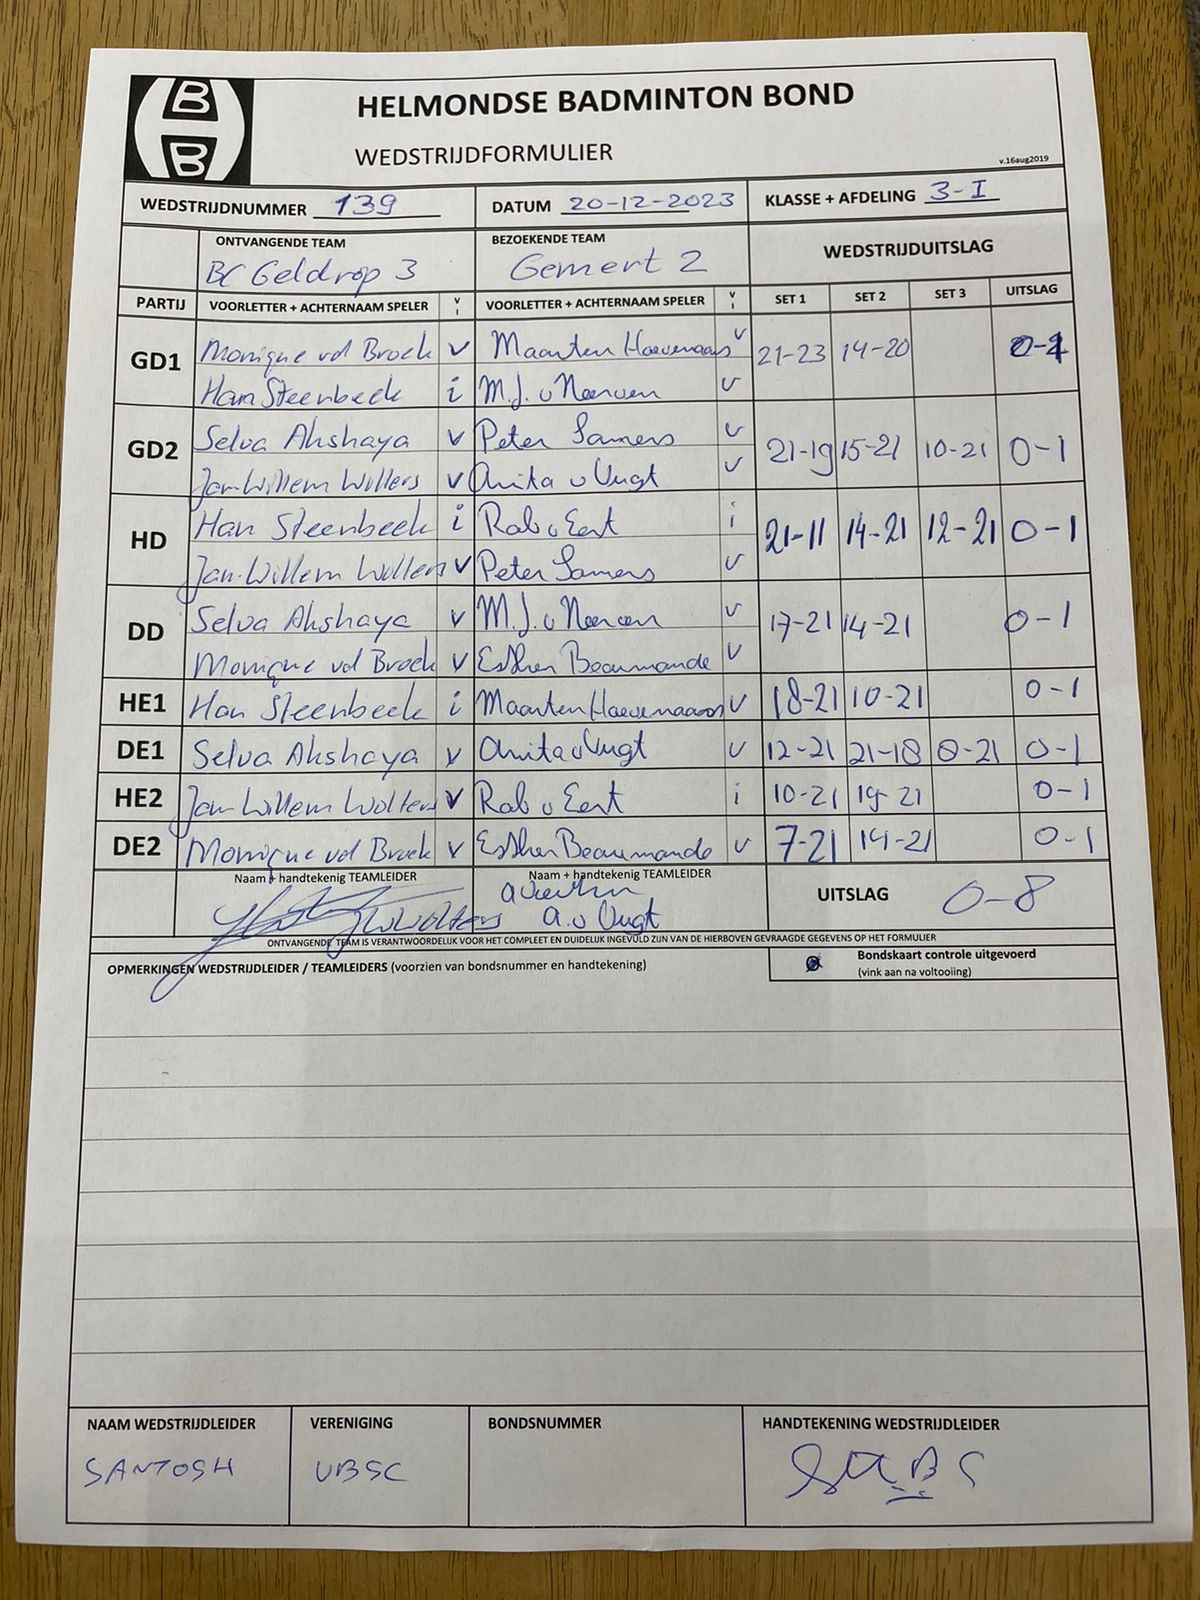 B
B
HELMONDSE BADMINTON BOND
WEDSTRIJDFORMULIER
v.16aug2019
WEDSTRIJDNUMMER 139 DATUM 20-12-2023 KLASSE + AFDELING 3-I
ONTVANGENDE TEAM BEZOEKENDE TEAM WEDSTRIJDUITSLAG
BC Geldrop 3 Gemert 2
PARTIJ VOORLETTER + ACHTERNAAM SPELER v i VOORLETTER + ACHTERNAAM SPELER v i SET 1 SET 2 SET 3 UITSLAG
GD1 Monique vd Broek v Maarten Hoevenaars v 21-23 14-20 0-1
Han Steenbeek i M.J. v Neerven v
GD2 Selva Akshaya v Peter Somers v 21-19 15-21 10-21 0-1
Jan-Willem Wolters v Anita v Vugt v
HD Han Steenbeek i Rob v Eert i 21-11 14-21 12-21 0-1
Jan-Willem Wolters v Peter Somers v
DD Selva Akshaya v M.J. v Neerven v 17-21 14-21 0-1
Monique vd Broek v Esther Beaumande v
HE1 Han Steenbeek i Maarten Hoevenaars v 18-21 10-21 0-1
DE1 Selva Akshaya v Anita v Vugt v 12-21 21-18 8-21 0-1
HE2 Jan-Willem Wolters v Rob v Eert i 10-21 19-21 0-1
DE2 Monique vd Broek v Esther Beaumande v 7-21 14-21 0-1
Naam + handtekenig TEAMLEIDER Naam + handtekenig TEAMLEIDER UITSLAG 0-8
JWWolters a.v Vugt
ONTVANGENDE TEAM IS VERANTWOORDELIJK VOOR HET COMPLEET EN DUIDELIJK INGEVULD ZIJN VAN DE HIERBOVEN GEVRAAGDE GEGEVENS OP HET FORMULIER
OPMERKINGEN WEDSTRIJDLEIDER / TEAMLEIDERS (voorzien van bondsnummer en handtekening) Bondskaart controle uitgevoerd
(vink aan na voltooiing)
NAAM WEDSTRIJDLEIDER VERENIGING BONDSNUMMER HANDTEKENING WEDSTRIJDLEIDER
SANTOSH VBSC